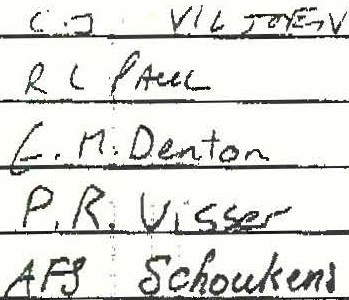 C.J VILJOEN
R L PAUL
E. M. Denton
P.R. Visser
AFS Schoukens